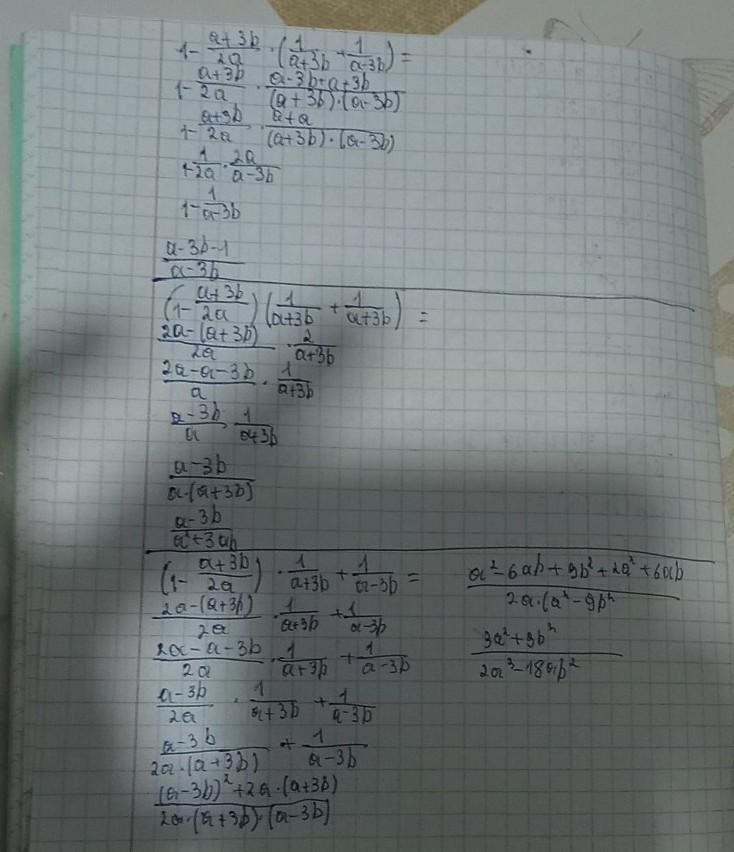 1 - (a+3b)/(2a) · (1/(a+3b) + 1/(a-3b)) =
1 - (a+3b)/(2a) · (a-3b+a+3b)/((a+3b)·(a-3b))
1 - (a+3b)/(2a) · (a+a)/((a+3b)·(a-3b))
1 - 1/(2a) · 2a/(a-3b)
1 - 1/(a-3b)
(a-3b-1)/(a-3b)
(1 - (a+3b)/(2a)) (1/(a+3b) + 1/(a+3b)) =
(2a-(a+3b))/(2a) · 2/(a+3b)
(2a-a-3b)/a · 1/(a+3b)
(a-3b)/a · 1/(a+3b)
(a-3b)/(a·(a+3b))
(a-3b)/(a²+3ab)
(1 - (a+3b)/(2a)) · 1/(a+3b) + 1/(a-3b) =
(2a-(a+3b))/(2a) · 1/(a+3b) + 1/(a-3b)
(2a-a-3b)/(2a) · 1/(a+3b) + 1/(a-3b)
(a-3b)/(2a) · 1/(a+3b) + 1/(a-3b)
(a-3b)/(2a·(a+3b)) + 1/(a-3b)
((a-3b)²+2a·(a+3b))/(2a·(a+3b)·(a-3b))
(a²-6ab+9b²+2a²+6ab)/(2a·(a²-9b²
(3a²+9b²)/(2a³-18ab²)